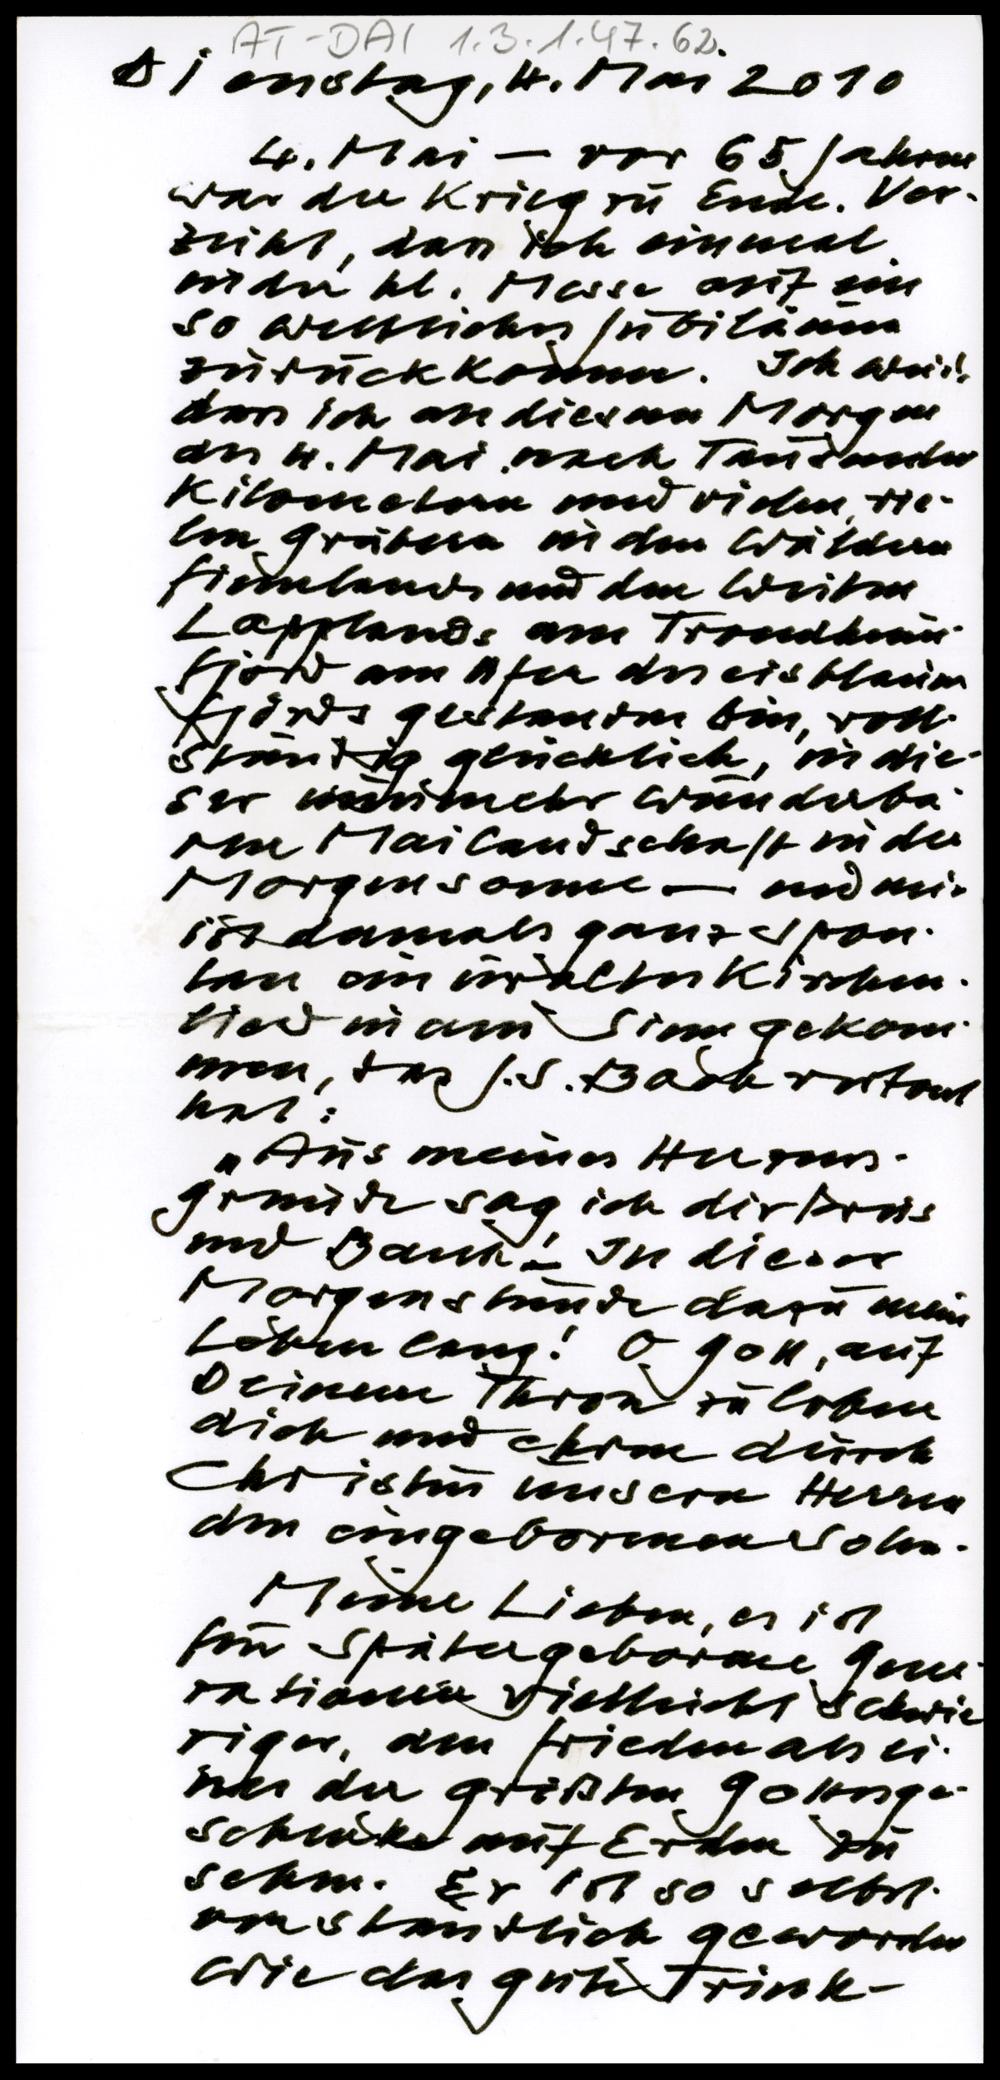 AT-DAI 1.3.1.47.62.
Dienstag, 4. Mai 2010
4. Mai — vor 65 Jahren
war der Krieg zu Ende. Ver-
zeiht, dass ich einmal
in der hl. Messe auf ein
so weltliches Jubiläum
zurückkomme. Ich weiß,
dass ich an diesem Morgen
des 4. Mai nach Tausenden
Kilometern und vielen, vie-
len Gräbern in den Wäldern
Finnlands und den Weiten
Lapplands am Trondheim-
fjord am Ufer des eisblauen
Fjords gestanden bin, voll-
ständig glücklich, in die-
ser nunmehr wunderba-
ren Mailandschaft in der
Morgensonne — und mir
ist damals ganz spon-
tan ein uraltes Kirchen-
lied in den Sinn gekom-
men, das J.S. Bach vertont
hat:
„Aus meines Herzens-
grunde sag ich dir Preis
und Dank! In dieser
Morgenstunde dazu mein
Leben lang! O Gott, auf
Deinem Thron zu loben
dich und ehren durch
Christus unsern Herren
den eingebornen Sohn.
Meine Lieben, es ist
für Spätergeborene Gene-
rationen vielleicht schwie-
riger, den Frieden als ei-
nes der größten Gottesge-
schenke auf Erden zu
sehen. Er ist so selbst-
verständlich geworden
wie das gute Trink-